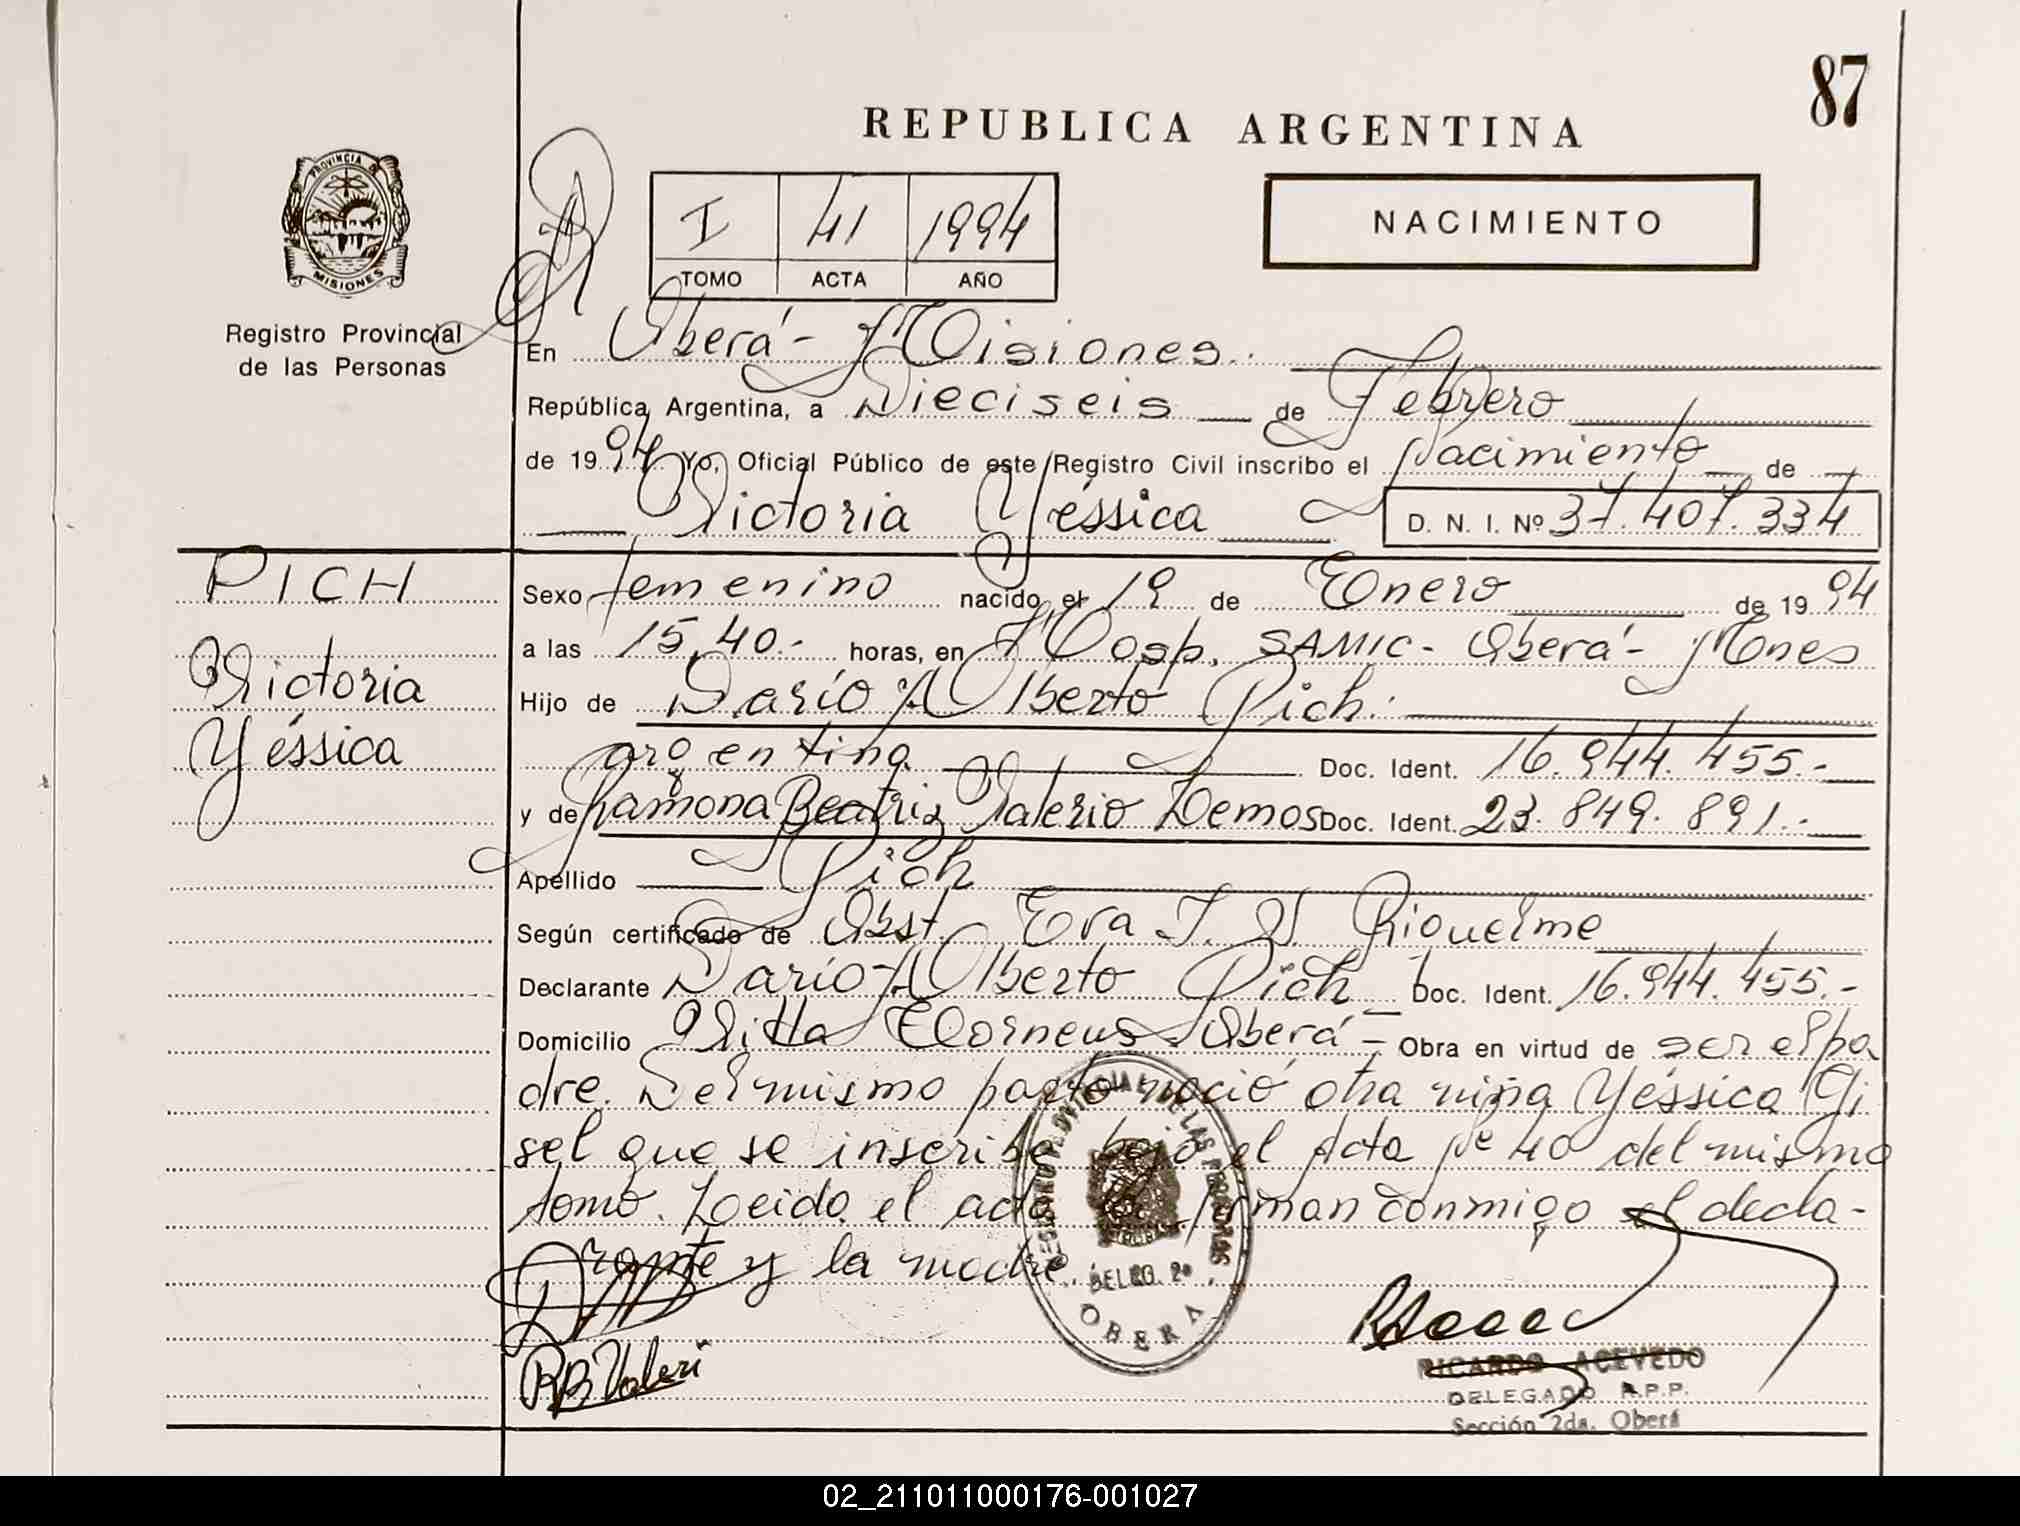 87
REPUBLICA ARGENTINA
PROVINCIA DE
MISIONES
Registro Provincial
de las Personas
I 41 1994
TOMO ACTA AÑO
NACIMIENTO
En Oberá - Misiones.
República Argentina, a Dieciseis de Febrero
de 1994 Yo, Oficial Público de este Registro Civil inscribo el Nacimiento de
Victoria Yéssica D. N. I. Nº 37.407.334
PICH
Victoria
Yéssica
Sexo femenino nacido el 19 de Enero de 1994
a las 15,40.- horas, en Hosp. SAMIC - Oberá - Mnes
Hijo de Darío Alberto Pich.
argentina Doc. Ident. 16.944.455.-
y de Ramona Beatriz Valerio Lemos Doc. Ident. 23.849.891.-
Apellido Pich
Según certificado de Obst. Eva Riquelme
Declarante Darío Alberto Pich Doc. Ident. 16.944.455.-
Domicilio Villa Oberá - Obra en virtud de ser el pa
dre. Del mismo parto nació otra niña Yéssica Gi
sel que se inscribe bajo el Acta Nº 40 del mismo
tomo. Leido el acta firman conmigo el decla-
rante y la madre.
REGISTRO PROVINCIAL DE LAS PERSONAS
DELEG. 2ª
OBERA
RB Valeri
RICARDO ACEVEDO
DELEGADO R.P.P.
Sección 2da. Oberá
02_211011000176-001027